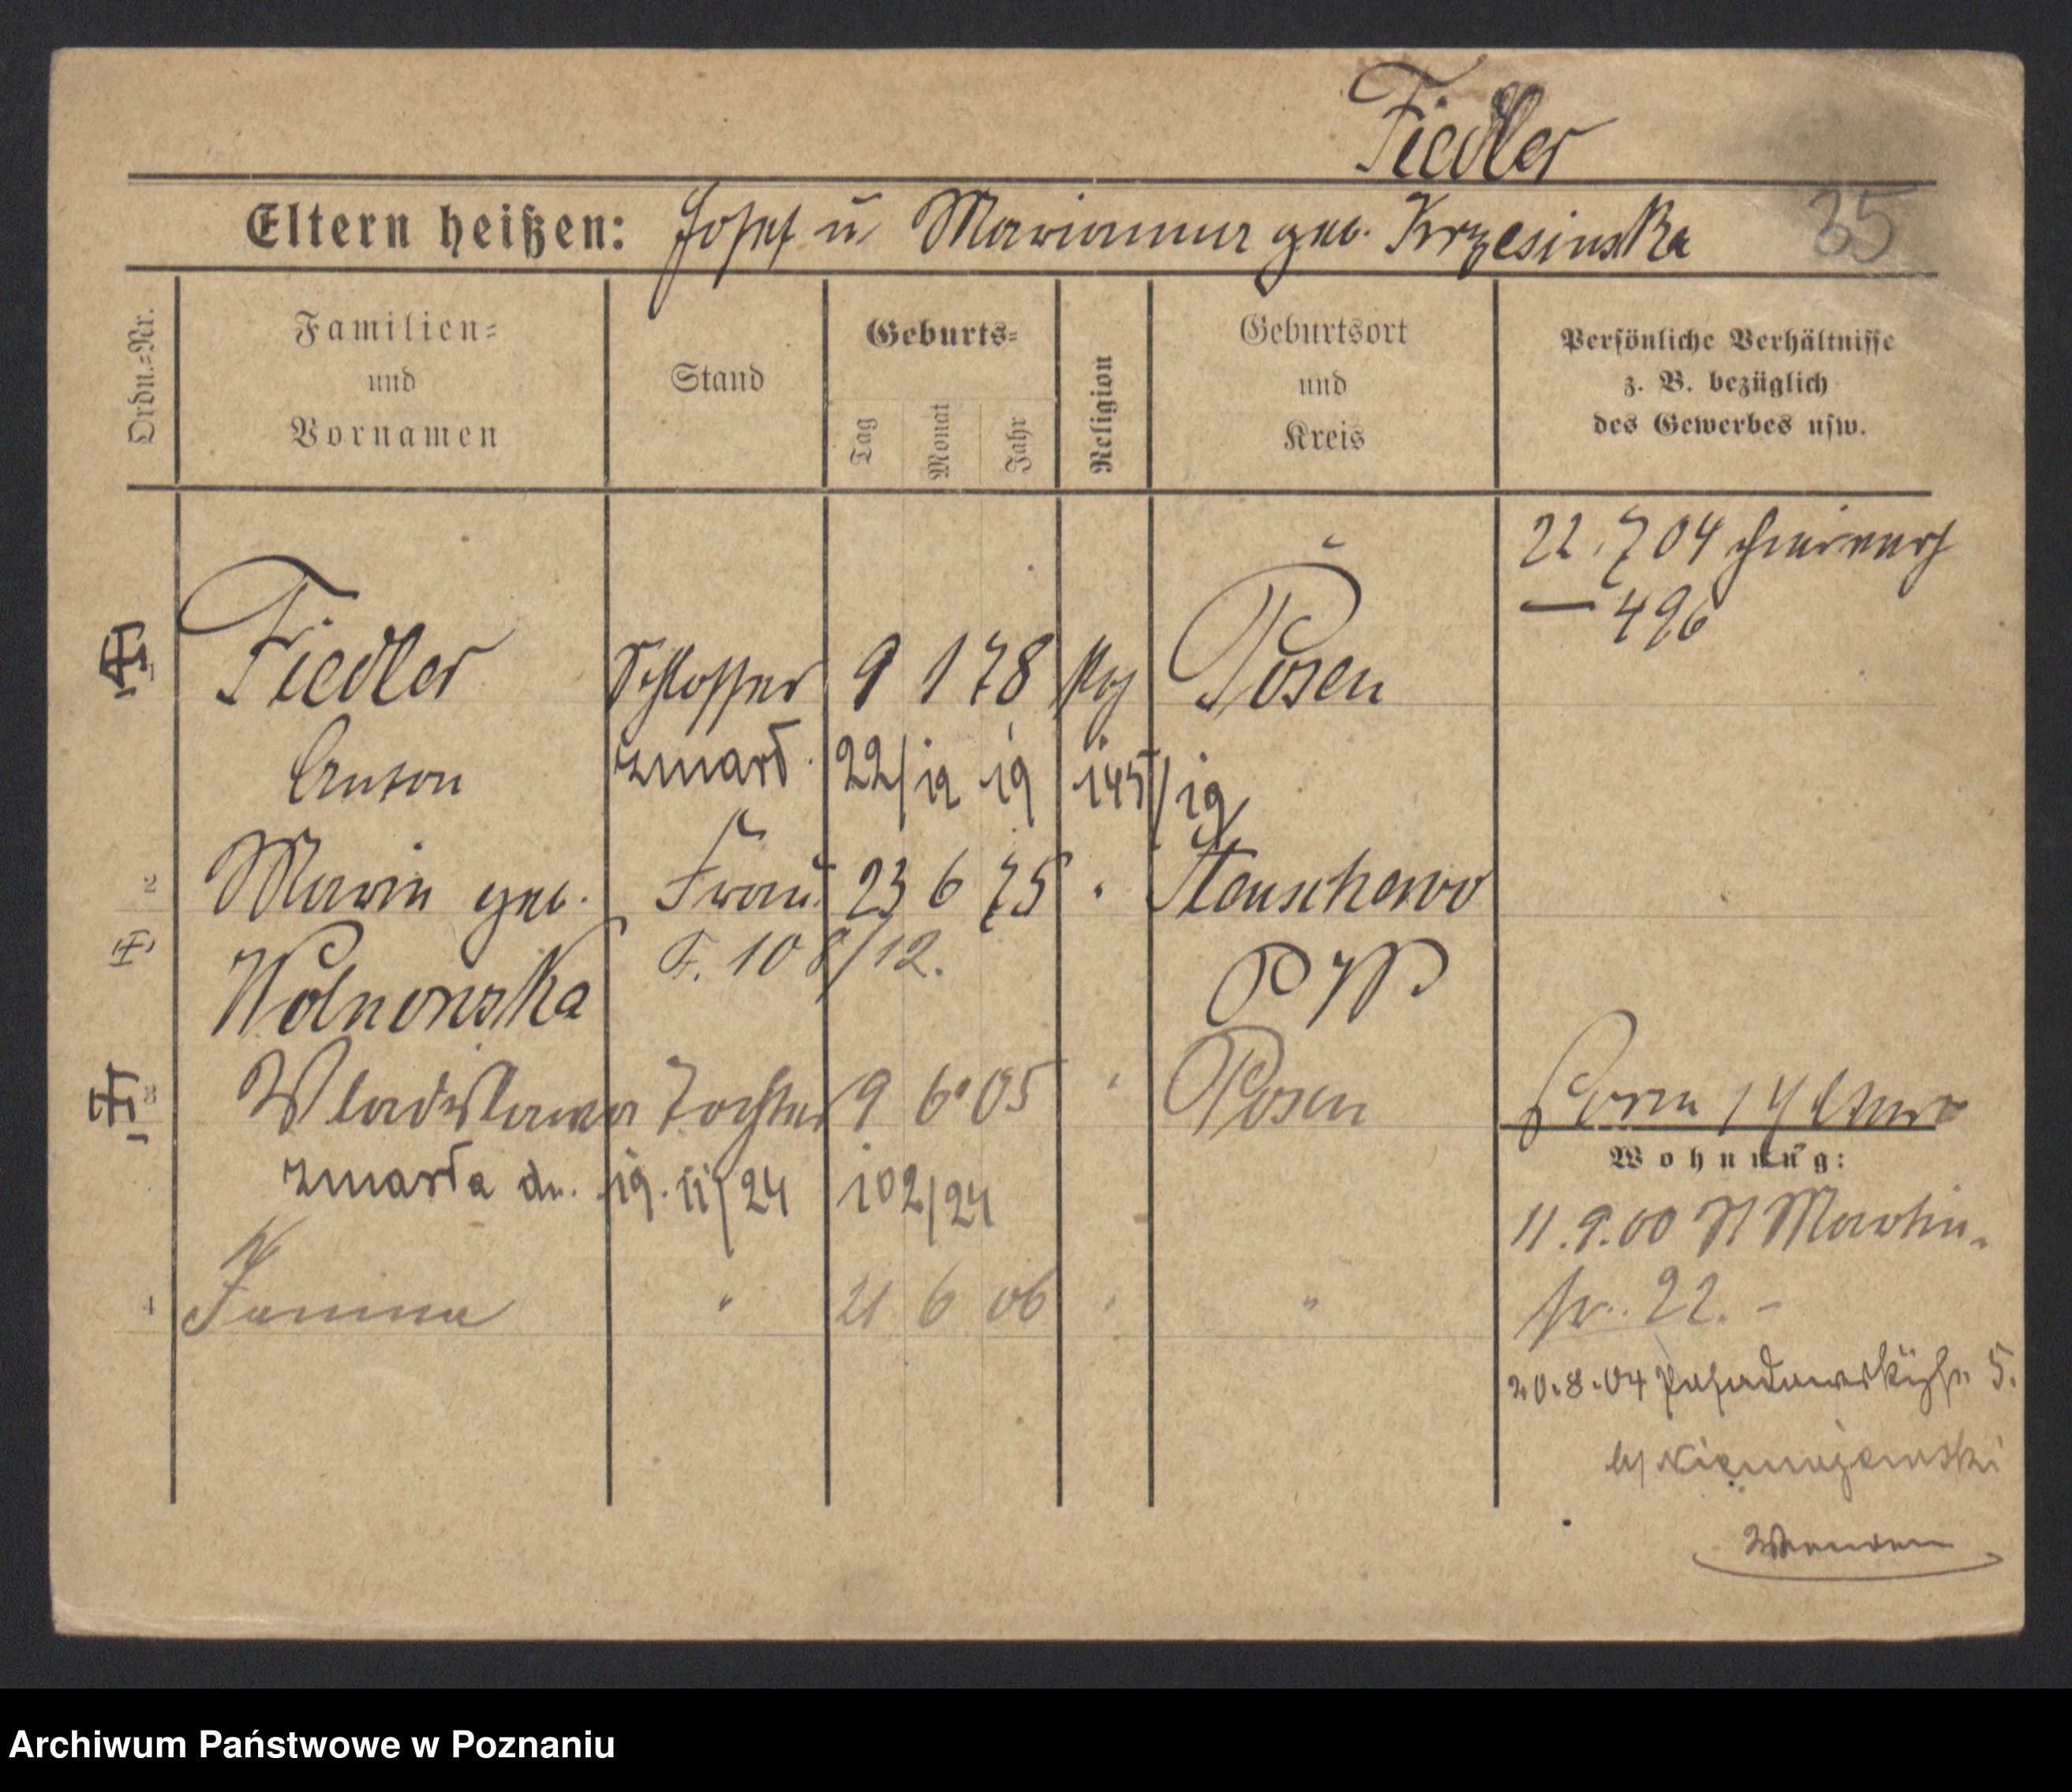 Fiedler
Eltern heißen: Josef u Marianna geb. Krzesinska 35
Ordn.=Nr.
Familien=
und
Vornamen
Stand
Geburts=
Tag
Monat
Jahr
Religion
Geburtsort
und
Kreis
Persönliche Verhältnisse
z. B. bezüglich
des Gewerbes usw.
22.7 04
— 496
1 Fiedler Schlosser 9 1 78 Posen
Anton zmarł 22/12 19 145/19
2 Marie geb. Frau 23 6 75 " Stenschewo
Wolnowska F. 108/12. P W
3 Wladislawa Tochter 9 6 05 " Posen
Wohnung:
zmarła dn. 19.11/24 102/24
11.9.00 St Martin-
str. 22. -
4 " 21 6 06 " "
20.8.04 5.
Wenden